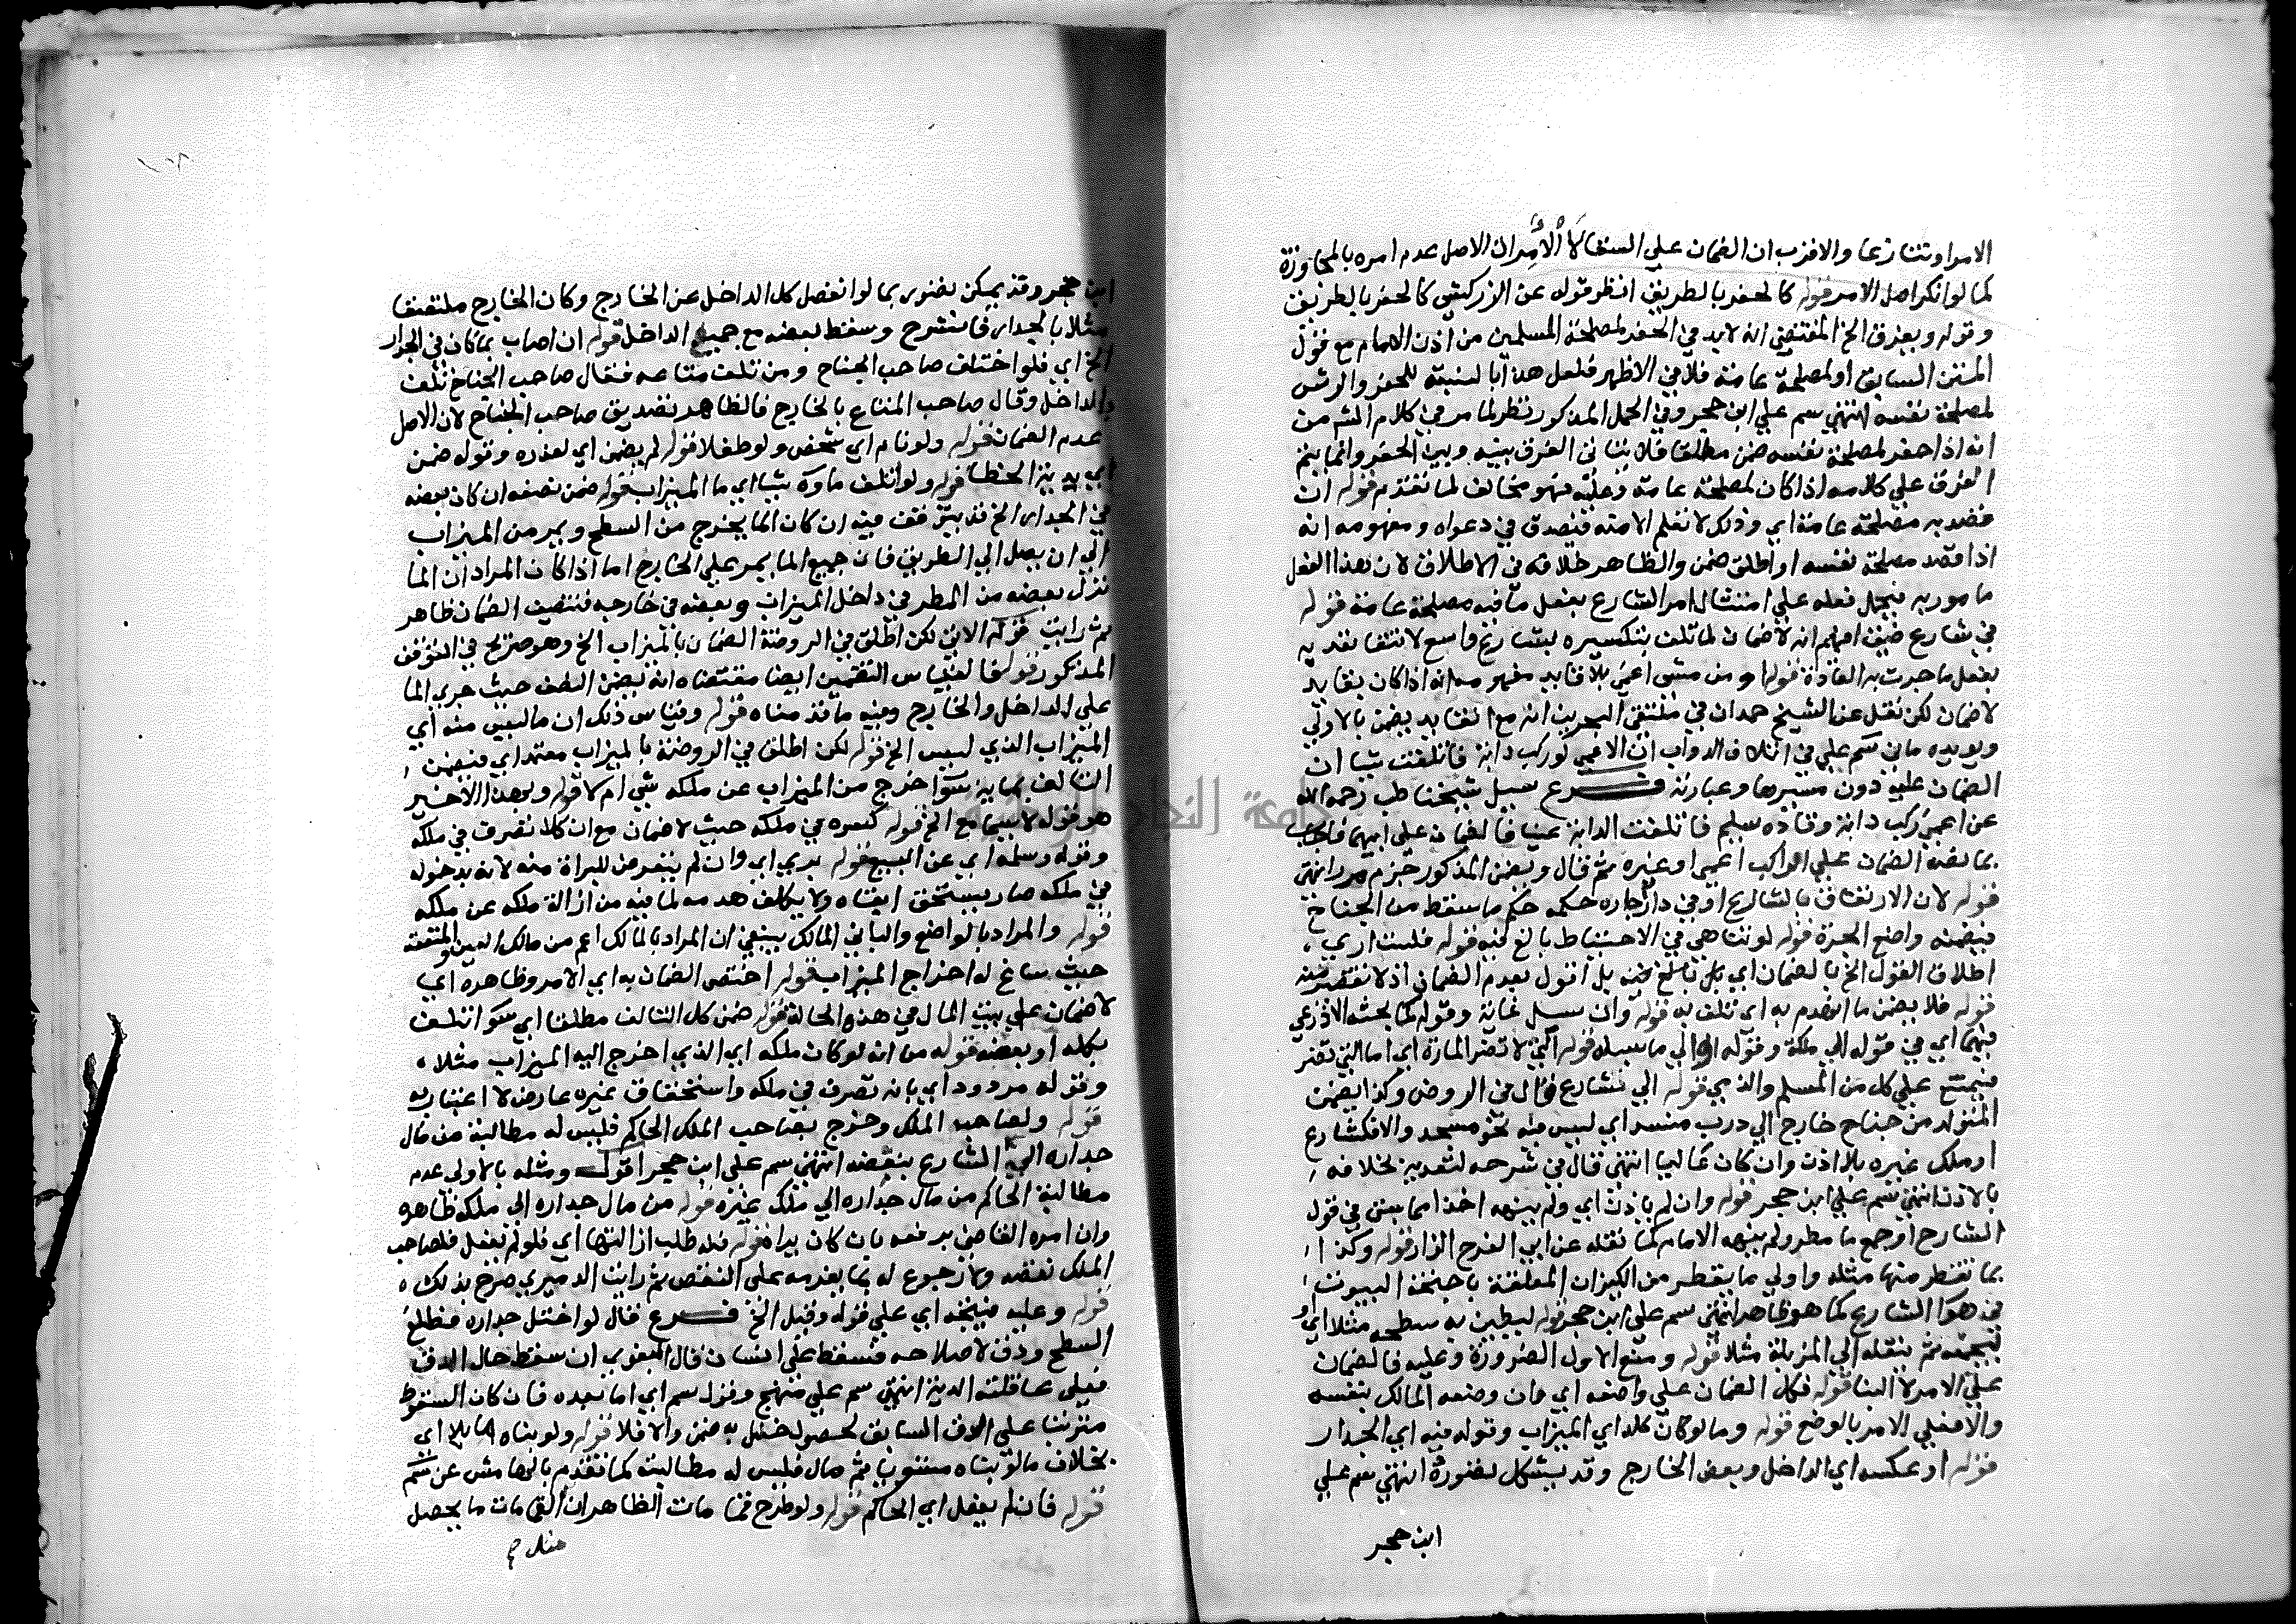 الامر او تنازعا والاقرب ان الضمان على السقا لا الأمر لان الاصل عدم امره بالمجاوزة
كما لو انكر اصل الامر قوله كالحفر بالطريق انظر قوله عن الزركشي كالحفر بالطريق
وقوله ويفرق الخ المقتضي انه لا بد في الحفر لمصلحة المسلمين من اذن الامام مع قول
المتن السابق او لمصلحة عامة فلا في الاظهر فلعل هذا بالنسبة للحفر والرش
لمصلحة نفسه انتهى سم على ابن حجر وفي الحمل المذكور نظر لما مر في كلام الشر من
انه اذا حفر لمصلحة نفسه ضمن مطلقا فلا يتاتى الفرق بينه وبين الحفر وانما يتم
الفرق على كلامه اذا كان لمصلحة عامة وعليه فهو مخالف لما تقدم قوله ان
قصد به مصلحة عامة اي وذلك لا نعلم الا منه فيصدق في دعواه ومفهومه انه
اذا قصد مصلحة نفسه او اطلق ضمن والظاهر خلافه في الاطلاق لان هذا الفعل
مامور به فيحمل فعله على امتثال امر الشارع بفعل ما فيه مصلحة عامة قوله
في شارع ضيق افهم انه لا ضمان لما تلف بتكسيره بشارع واسع لانتفا تعديه
بفعل ما جرت به العادة قوله او من مشى اعمى بلا قايد مفهومه انه اذا كان بقايد
لا ضمان لكن نقل عن الشيخ حمدان في ملتقى البحرين انه مع القايد يضمن بالاولى
ويويده ما في سم على في اتلاف الدواب ان الاعمى لو ركب دابة فاتلفت شيا ان
الضمان عليه دون مسيرها وعبارته فرع سيل شيخنا طب رحمه الله
عن اعمى ركب دابة وقاده سليم فاتلفت الدابة عينا فالضمان على ايهما فاجاب
بما نصه الضمان على الراكب اعمى او غيره ثم قال وبعض المذكور جزم مر انتهى
قوله لان الارتفاق بالشارع او في دار جاره حكمه حكم ما سقط من الجناح
فيضمنه واضع الجرة قوله لو تناهى في الاحتياط بالغ فيه قوله فليست اري
اطلاق القول الخ بالضمان اي بل بالغ فيه بل اقول بعدم الضمان اذ لا تقصير منه
قوله فلا يضمن ما انصدم به اي تلف به قوله وان سبل غايه وقوله كما بحثه الاذرعي
فيهما اي في قوله الى ملكه وقوله او الى ما سبله قوله التي لا تضر المارة اي اما التي تضر
فيمتنع على كل من المسلم والذمي قوله الى شارع قال في الروض وكذا يضمن
المتولد من جناح خارج الى درب منسد اي ليس فيه نحو مسجد والا فكشارع
او ملك غيره بلا اذن وان كان عاليا انتهى قال في شرحه لتعديه بخلافه
بالاذن انتهى سم على ابن حجر قوله وان لم ياذن اي ولم ينهه اخذا مما ياتي في قول
الشارح اوجع ما مطر ولم ينهه الامام كما نقله عن ابي الفرج الزاز قوله وكذا
بما تقطر منها مثله واولى ما يقطر من الكيزان المعلقة باجنحة البيوت
في هوا الشارع كما هو ظاهر انتهى سم على ابن حجر قوله ليطين به سطحه مثلا اي او
ليجمعه ثم ينقله الى المزبلة مثلا قوله ومنع الاول الضرورة وعليه فالضمان
على الامر لا البنا قوله فكل الضمان على واضعه اي وان وضعه المالك بنفسه
والا فعلى الامر بالوضع قوله وما لو كان كله اي الميزاب وقوله فيه اي الجدار
قوله او عكسه اي الداخل وبعض الخارج وقد يشكل بصورة انتهى سم على
ابن حجر
ابن حجر وقد يمكن تصويره بما لو انفصل كل الداخل عن الخارج وكان الخارج ملتصقا
مثلا بالجدار فانشرح وسقط بعضه مع جميع الداخل قوله ان اصاب بما كان في الجدار
الخ اي فلو اختلف صاحب الجناح ومن تلف متاعه فقال صاحب الجناح تلف
بالداخل وقال صاحب المتاع بالخارج فالظاهر تصديق صاحب الجناح لان الاصل
عدم الضمان قوله ولو نام اي شخص ولو طفلا قوله لم يضمن اي لعذره وقوله ضمن
اي بدية الخطا قوله ولو اتلف ماوه شيا اي ما الميزاب قوله ضمن نصفه ان كان بعضه
في الجدار الخ قد يتوقف فيه ان كان الما يخرج من السطح ويمر من الميزاب
الى ان يصل الى الطريق فان جميع الما يمر على الخارج اما اذا كان المراد ان الما
نزل بعضه من المطر في داخل الميزاب وبعضه في خارجه فتنصيف الضمان ظاهر
ثم رايت قوله الاتي لكن اطلق في الروضة الضمان بالميزاب الخ وهو صريح في التوقف
المذكور قوله فالقياس التضمين ايضا مقتضاه انه يضمن النصف حيث جرى الما
على الداخل والخارج وفيه ما قدمناه قوله وقياس ذلك ان ما ليس منه اي
الميزاب الذي ليس الخ قوله لكن اطلق في الروضة بالميزاب معتمد اي فيضمن
التالف بمايه سوا خرج من الميزاب عن ملكه شي ام لا قوله وبهذا الاخير
هو قوله لا سيما مع الخ قوله كسره في ملكه حيث لا ضمان مع ان كلا تصرف في ملكه
وقوله وسلمه اي عن المبيع قوله بري اي وان لم يتعرض للبراة منه لانه بدخوله
في ملكه صار يستحق ابقاه ولا يكلف هدمه لما فيه من ازالة ملكه عن ملكه
قوله والمراد بالواضع والباني المالك ينبغي ان المراد بالمالك اعم من مالك العين والمنفعة
حيث ساغ له اخراج الميزاب قوله اختص الضمان به اي الامر وظاهره اي
لا ضمان على بيت المال في هذه الحالة قوله ضمن كل التالف مطلقا اي سوا اتلف
بكله او بعضه قوله من انه لو كان ملكه اي الذي اخرج اليه الميزاب مثلا
وقوله مردود اي بانه تصرف في ملكه واستحقاق غيره عارض لا اعتبار به
قوله ولصاحب الملك وخرج بصاحب الملك الحاكم فليس له مطالبة من مال
جداره الى الشارع بنقضه انتهى سم على ابن حجر اقول ومثله بالاولى عدم
مطالبة الحاكم من مال جداره الى ملك غيره قوله من مال جداره الى ملكه ظاهره
وان امره القاضي برفعه بان كان يراه قوله فله طلب ازالتها اي فلو لم يفعل فلصاحب
الملك نقضه ولا رجوع له بما يغرمه على النقض ثم رايت الدميري صرح بذلك
قوله وعليه فيتجه اي على قوله وقيل الخ فرع قال لو اختل جداره فطلع
السطح ودق لاصلاحه فسقط على انسان قال البغوي ان سقط حال الدق
فعلى عاقلته الدية انتهى سم على منهج وقول سم اي اما بعده فان كان السقوط
مترتبا على الدق السابق لحصول خلل به ضمن والا فلا قوله ولو بناه مايلا اي
بخلاف ما لو بناه مستويا ثم مال فليس له مطالبته كما تقدم بالهامش عن سم
قوله فان لم يفعل اي الحاكم قوله ولو طرح قمامات الظاهر ان القمامات ما يحصل